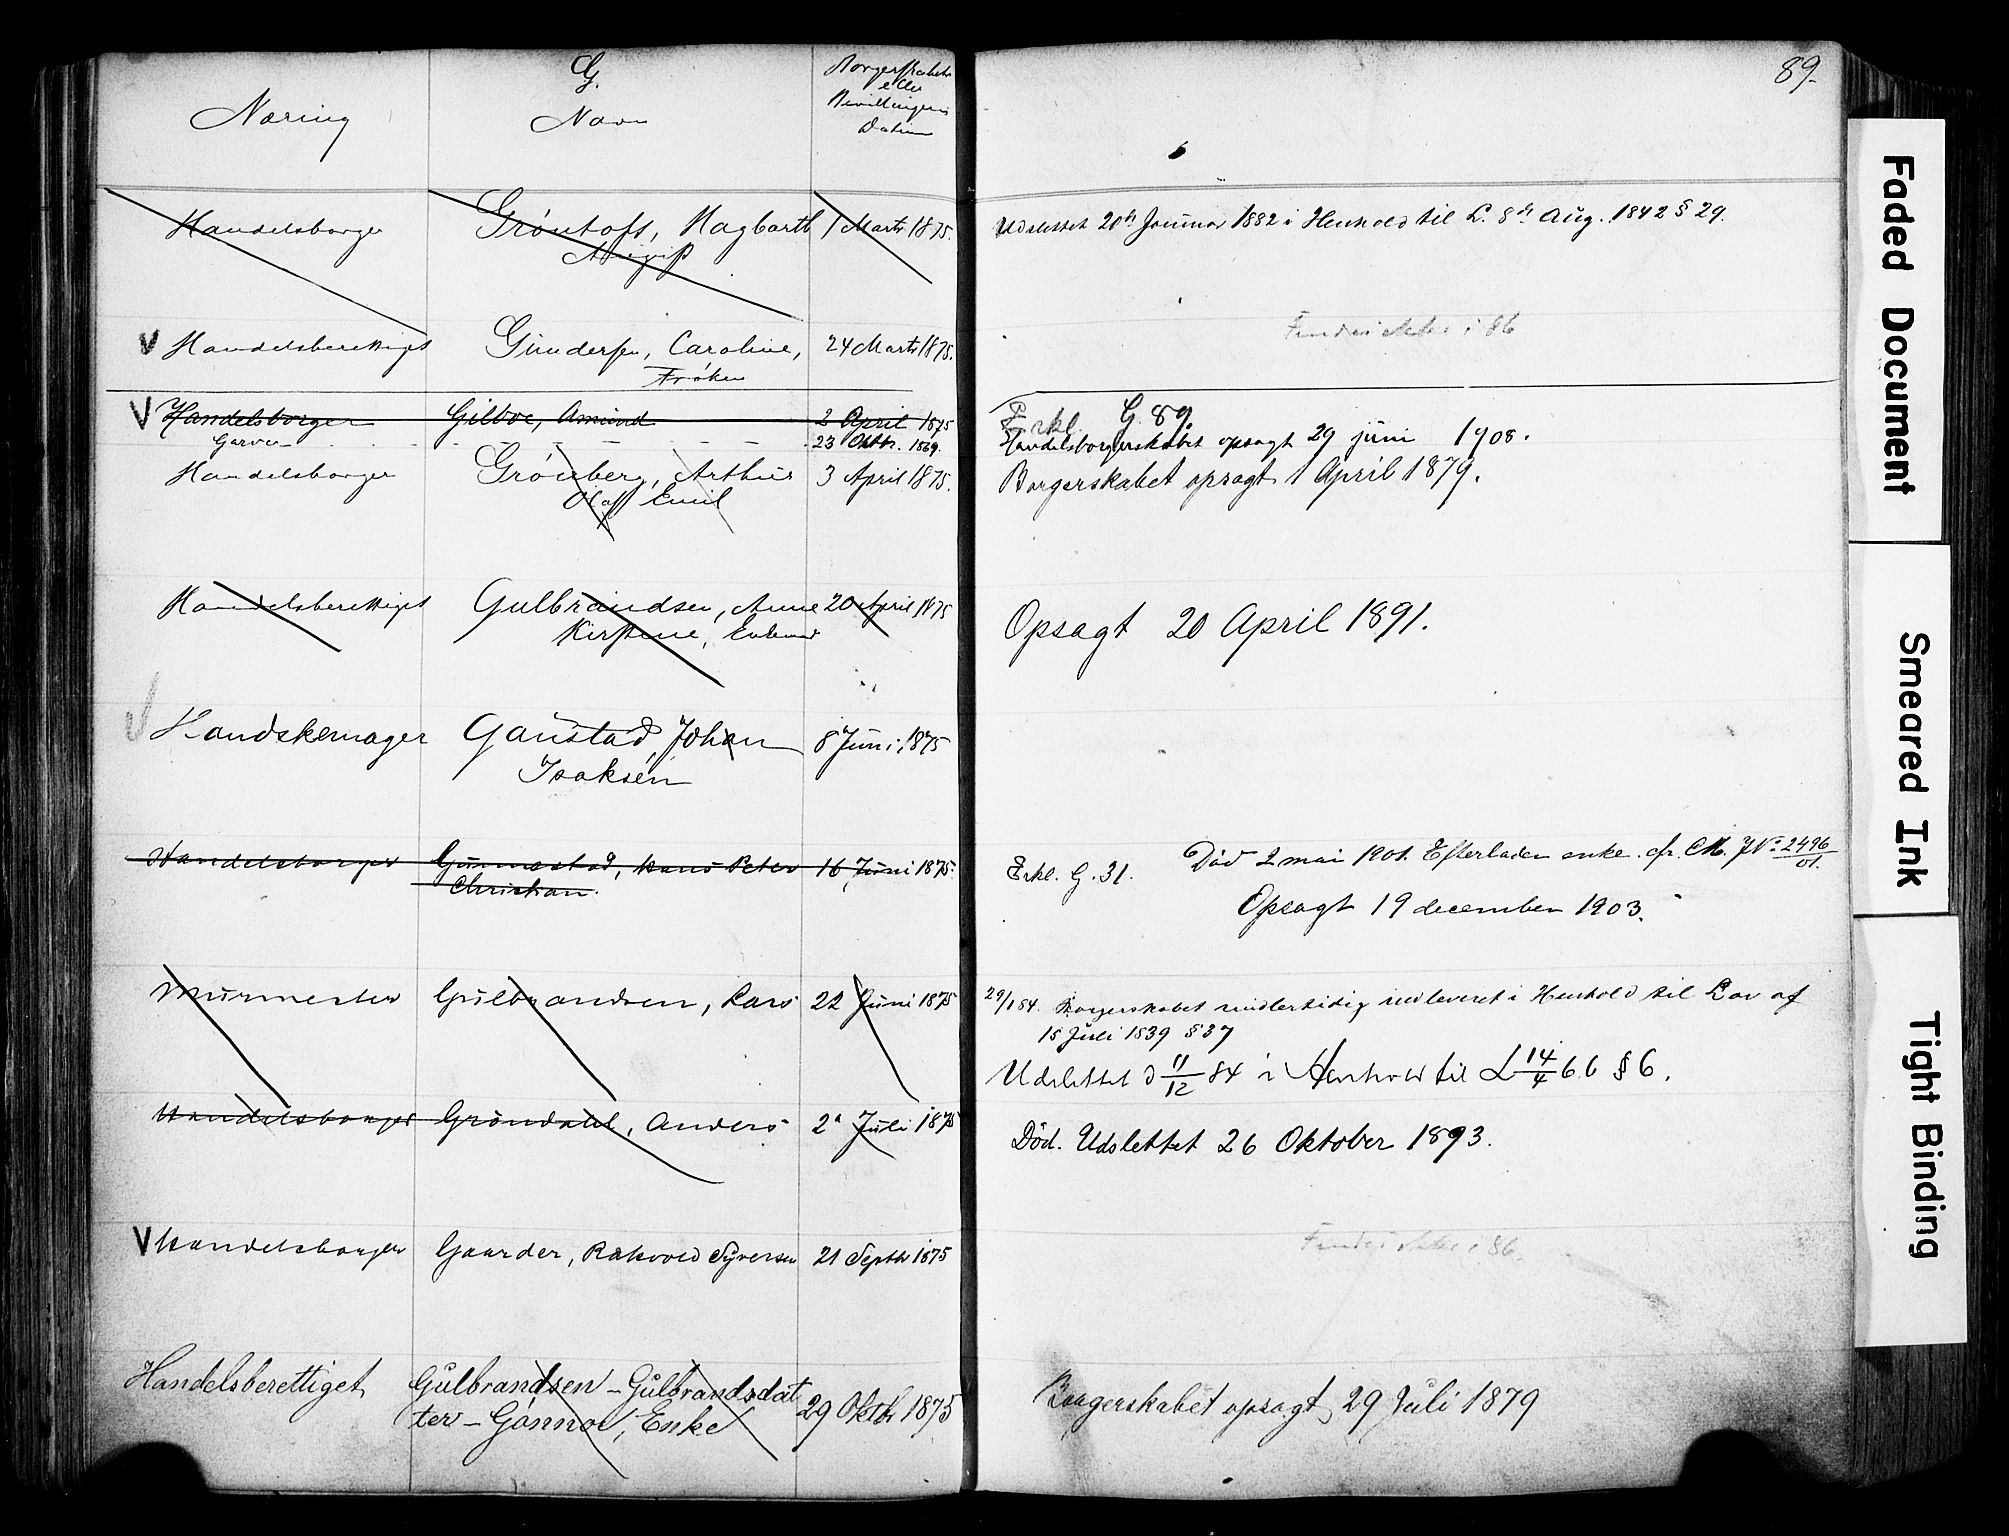 G.
89.
Næring
Navn
Borgerskabets
eller
Bevillingens
Datum
Handelsborger Gröntoft, Hagbarth 1 Marts 1875. Udslettet 20de Januar 1882 i Henhold til L. 8de Aug. 1842 § 29.
V Handelsberettiget Gundersen, Caroline, 24 Marts 1875.
Frøken
i 86
V Handelsborger Gilboe, Amund 2 April 1875 Erkl. G. 89.
Garver - - - - - - - 23 Oktbr. 1869. Handelsborgerskabet opsagt 29 juni 1908.
Handelsborger Grönberg, Arthur 3 April 1875. Borgerskabet opsagt 1 April 1879.
Olaf Emil
Handelsberettiget Gulbrandsen, Anne 20 April 1875 Opsagt 20 April 1891.
Kirstine,
V Handskemager Gaustad, Johan 8 Juni 1875
Isaksen
Handelsborger Gunnestad, Hans Peter 16 Juni 1875. Erkl. G. 31. Död 2 mai 1901. Efterlader enke. cfr. CM. J No 2496/01.
Christian.
Opsagt 19 december 1903.
Murmester Gulbrandsen, Lars 22 Juni 1875 29/1 84. Borgerskabet midlertidig indleveret i Henhold til Lov af
15 Juli 1839 § 37
Udslettet d 11/12 84 i Henhold til L 14/4 66 § 6.
Handelsborger Gröndahl, Anders 2 Juli 1875 Död. Udslettet 26 Oktober 1893.
V Handelsborger Gaarder, Rakvold Syversen 21 Septbr 1875
i 86.
Handelsberettiget Gulbrandsen - Gulbrandsdat
ter - Gönnor, Enke 29 Oktbr 1875 Borgerskabet opsagt 29 Juli 1879
Faded Document
Smeared Ink
Tight Binding